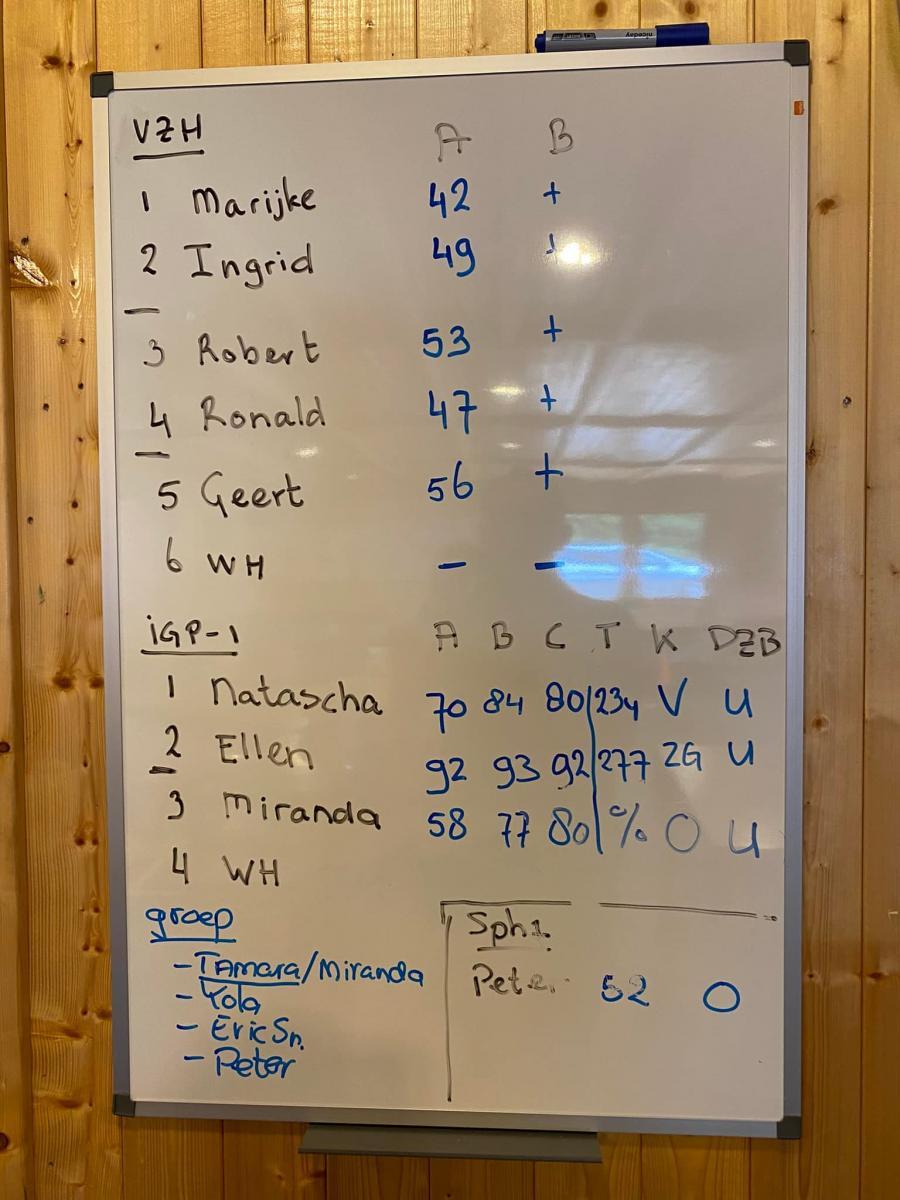 niceday
VZH A B
1 Marijke 42 +
2 Ingrid 49 +
3 Robert 53 +
4 Ronald 47 +
5 Geert 56 +
6 WH — —
iGP-1 A B C T K DZB
1 Natascha 70 84 80 234 V U
2 Ellen 92 93 92 277 ZG U
3 Miranda 58 77 80 % O U
4 WH
groep
- TAmara/Miranda
- Yola
- Eric Sn.
- Peter
Sph1.
Peter 52 O